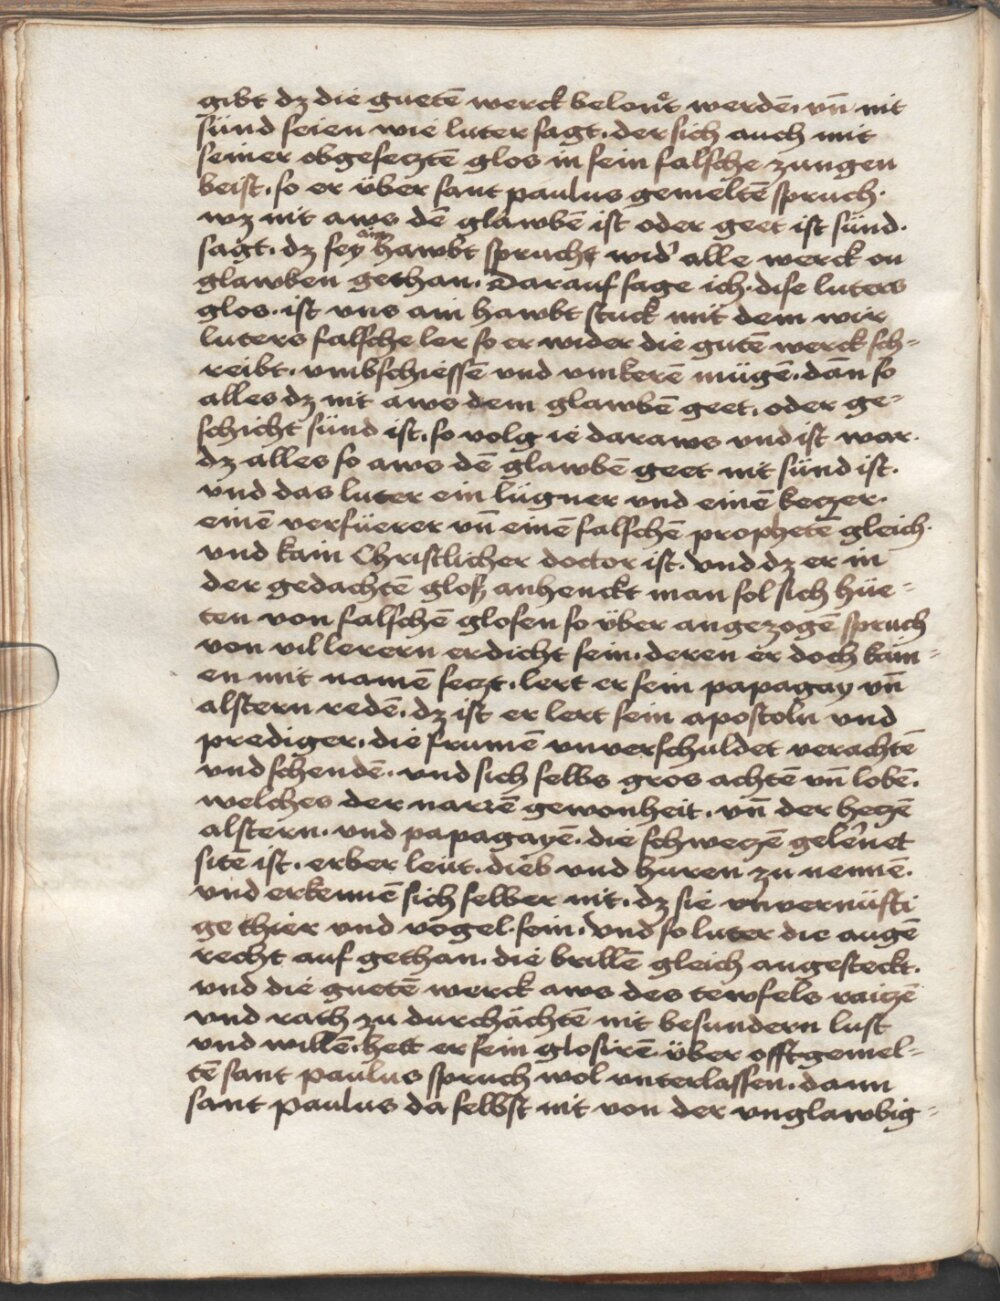 gibt dz die guetē werck belon̊t werdē. vn̄ nit
sünd seien wie luter sagt. der sich auch mit
seiner obgesetztē glos in sein falsche zungen
beist. so er über sant paulus gemeltē spruch.
wz nit aws dē glawbē ist oder geet ist sünd.
sagt. dz sey ain hawbt spruch wid' alle werck on
glawben gethan. Darauf sage ich. dise luters
glos. ist vns ain hawbt stuck mit dem wir
luters falsche ler so er wider die gutē werck sch-
reibt. vmbschiessē vnd vmkerē mügē. dan̄ so
alles dz nit aws dem glawbē geet. oder ge-
schicht sünd ist. so volg ie daraws vnd ist war.
dz alles so aws dē glawbē geet nit sünd ist.
vnd das luter ein lügner vnd einē ketzer.
einē verfüerer vn̄ einē falschē prophetē gleich.
vnd kain Christlicher doctor ist. vnd dz er in
der gedachtē glos anhenckt man sol sich hüe-
ten von falschē glosen so über angezogē spruch
von vil lerern erdicht sein. deren er doch kain-
en mit namē setzt. lert er sein papagay vn̄
alstern redē. dz ist er lert sein apostoln vnd
prediger. die frumē vnverschuldet verachtē
vnd schendē. vnd sich selbs gros achtē vn̄ lobē.
welches der narrē gewonheit. vn̄ der hetzē
alstern. vnd papagayē. die schwetzē gelernet
sitē ist. erber leüt. dieb vnd huren zu nennē.
vnd erkennē sich selber nit. dz sie vnvernüfti
ge thier vnd vögel sein. vnd so luter die augē
recht auf gethan. die brillē gleich angesteckt.
vnd die guetē werck aws des tewfels raitzē
vnd rath zu durchächtē nit besundern lust
vnd willē. hett er sein glosirē über offtgemel-
tē sant paulus spruch wol vnterlassen. dann
sant paulus da selbst nit von der vnglawbig-